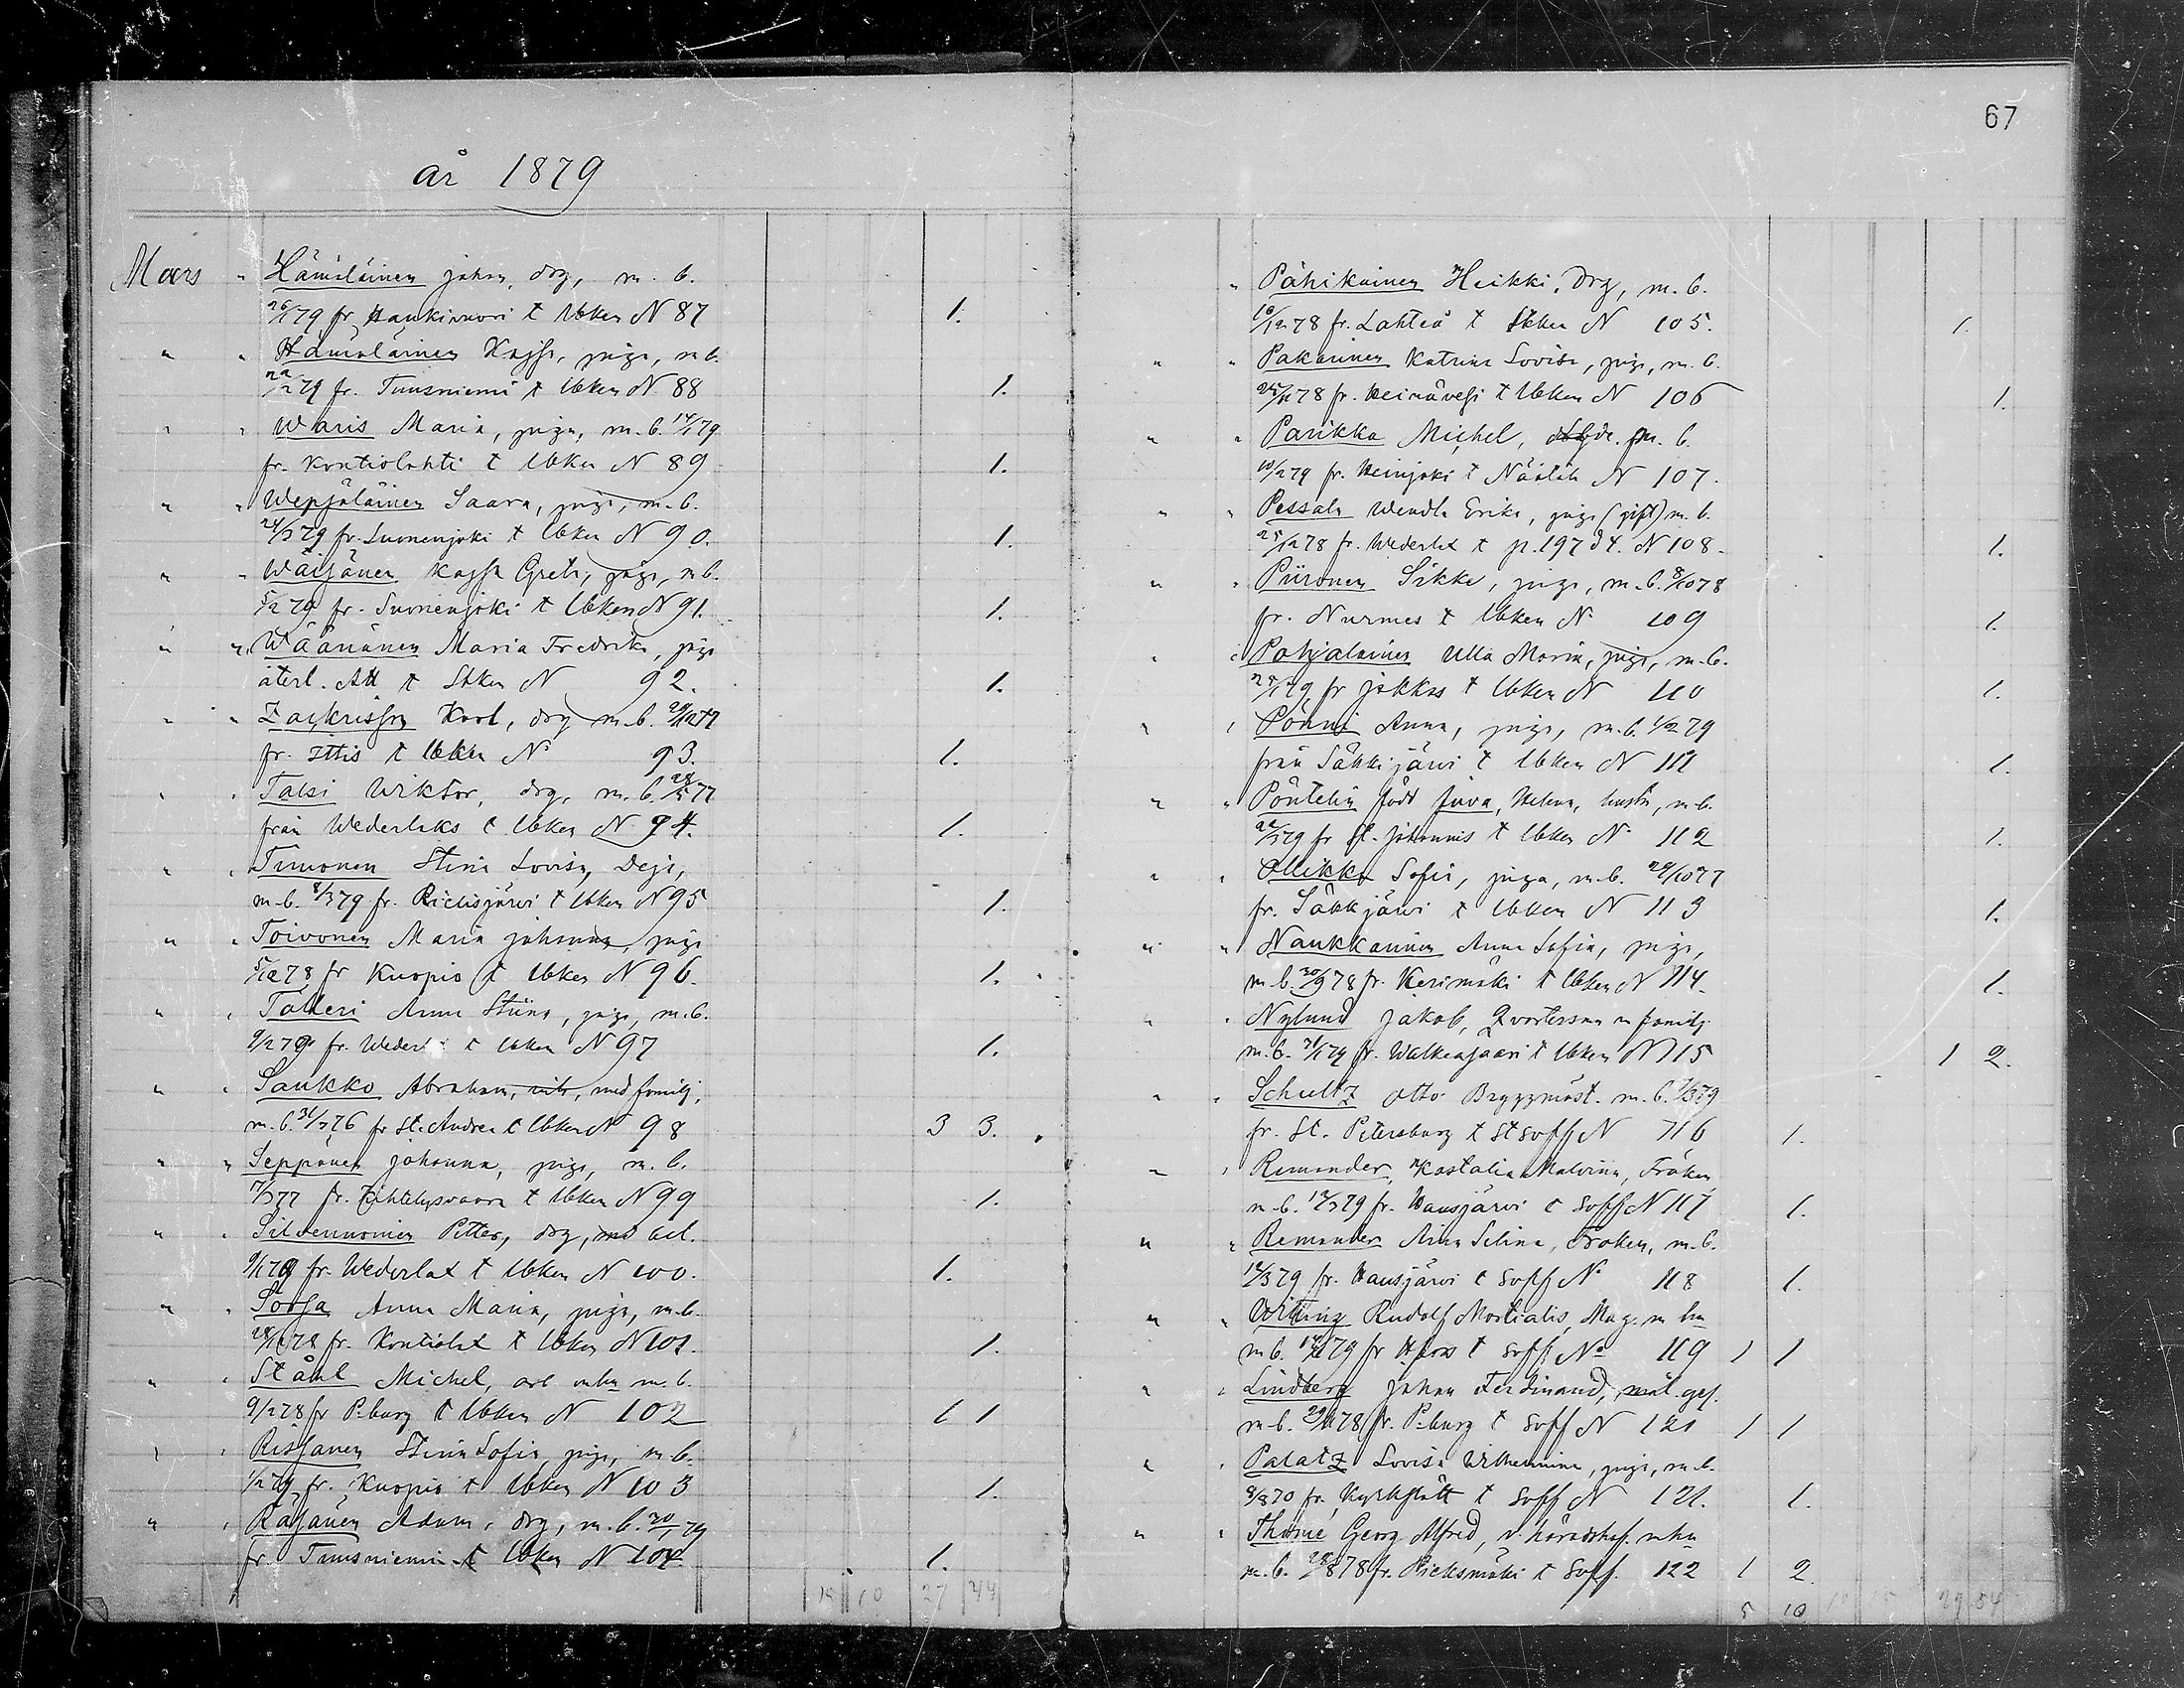 67
år 1879
Mars " Hämäläinen Johan, drg, m. b.
26/1 79 fr. Haukivuori t Ubken N 87 1.
" " Hämäläinen Kajsa, piga, m b.
22/2 79 fr. Tuusniemi t Ubken N 88 1.
" " Waris Maria, piga, m. b. 14/1 79
fr. Kontiolahti t Ubken N 89 1.
" " Wepsäläinen Saara, piga, m. b.
24/3 79 fr. Suonenjoki t Ubken N 90. 1.
" " Wäisänen Kajsa Greta, piga, m b.
5/2 79 fr. Suonenjoki t Ubken N 91. 1.
" " Wäänänen Maria Fredrika, piga
återl. Att t Sbken N 92. 1.
" " Zackrisson Karl, drg m. b.
fr. Ittis t Ubken N 93. 1.
" " Talsi Wiktor, drg, m. b. 77
från Wederlaks t Ubken N 94. 1.
" " Timonen Stina Lovisa, Deja,
m. b. 8/3 79 fr. t Ubken N 95 1.
" " Toivonen Maria Johanna, piga
5/12 78 fr Kuopio t Ubken N 96. 1.
" " Tätteri Anna Stiina, piga, m. b.
9/2 79 fr. t Ubken N 97 1.
" " Saukko Abraham, med familj,
m. b. 31/7 76 fr St. Andrea t Ubken N 98 3 3.
" " Seppänen Johanna, piga, m. b.
7/3 77 fr. Tohtelysvaara t Ubken N 99 1.
" " Silvennoinen Petter, drg,
9/1 79 fr. Wederlax t Ubken N 100. 1.
" " Sorsa Anna Maria, piga, m. b.
28/12 78 fr. Kontiolax t Ubken N 101. 1.
" " Ståhl Michel, arb m. b.
9/2 78 fr P:burg t Ubken N 102 1 1
" " Rissanen Stina Sofia, piga, m b.
1/2 79 fr. Kuopio t Ubken N 103 1.
" " Räsänen Adam, drg, m. b. 30/1 79
fr. Tuusniemi t Ubken N 104. 1.
19 10 27 44
" Pähikäinen Heikki, Drg, m. b.
10/12 78 fr. Lahteå t Sbken N 105. 1.
" " Pakarinen Katrina Lovisa, piga, m. b.
25/11 78 fr. Heinävesi t Ubken N 106 1.
" " Parikka Michel, m. b.
10/2 79 fr. Heinjoki t N 107.
" " Pessala Wendla Erika, piga (gift) m. b.
25/12 78 fr. Wederlax t p. 197 d 4. N 108. 1.
" " Piironen Sikke, piga, m. b. 8/10 78
fr. Nurmes t Ubken N 109 1.
" " Pohjalainen Ulla Maria, piga, m. b.
25/1 79 fr Jokkas t Ubken N 110 1.
" " Pönni Anna, piga, m. b. 1/2 79
från Säkkijärvi t Ubken N 111 1.
" " Pöntelin född Juva, Helena, hustr, m. b.
22/3 79 fr St. Johannis t Ubken N 112 1.
" " Ollikka Sofia, piga, m. b. 29/10 77
fr. Säkkjärvi t Ubken N 113 1.
" " Naukkarinen Anna Sofia, piga,
m. b. 30/9 78 fr. Kerimäki t Ubken N 114. 1.
" " Nylund Jakob, m familj
m. b. 31/1 79 fr. Walkeasaari t Ubken N 115 1 2.
" " Schultz Otto Byggmäst. m. b. 7/3 79
fr. St. Petersburg t St Soff N 116 1.
" " Remander, Kastalia Malvina, Fröken,
m. b. 12/3 79 fr. Hausjärvi t Soff N 117 1.
" " Remander Aina Selina, Fröken, m. b.
12/3 79 fr. Hausjärvi t Soff N 118 1.
" " Witting Rudolf Martialis, Mag. m hu
m b. 79 fr H:fors t Soff No 119 1 1
" " Lindberg Johan Ferdinand, mål. ges.
m. b. 29/11 78 fr. P:burg t Soff N 120 1 1
" " Palatz Lovisa Wilhelmina, piga, m. b.
8/8 70 fr. Kyrkslätt t Soff N 121. 1.
" " Thomé Georg Alfred, v. häradshöf. m hu
m. b. 28/8 78 fr. Pieksmäki t Soff. 122 1 2.
5 10 29 54